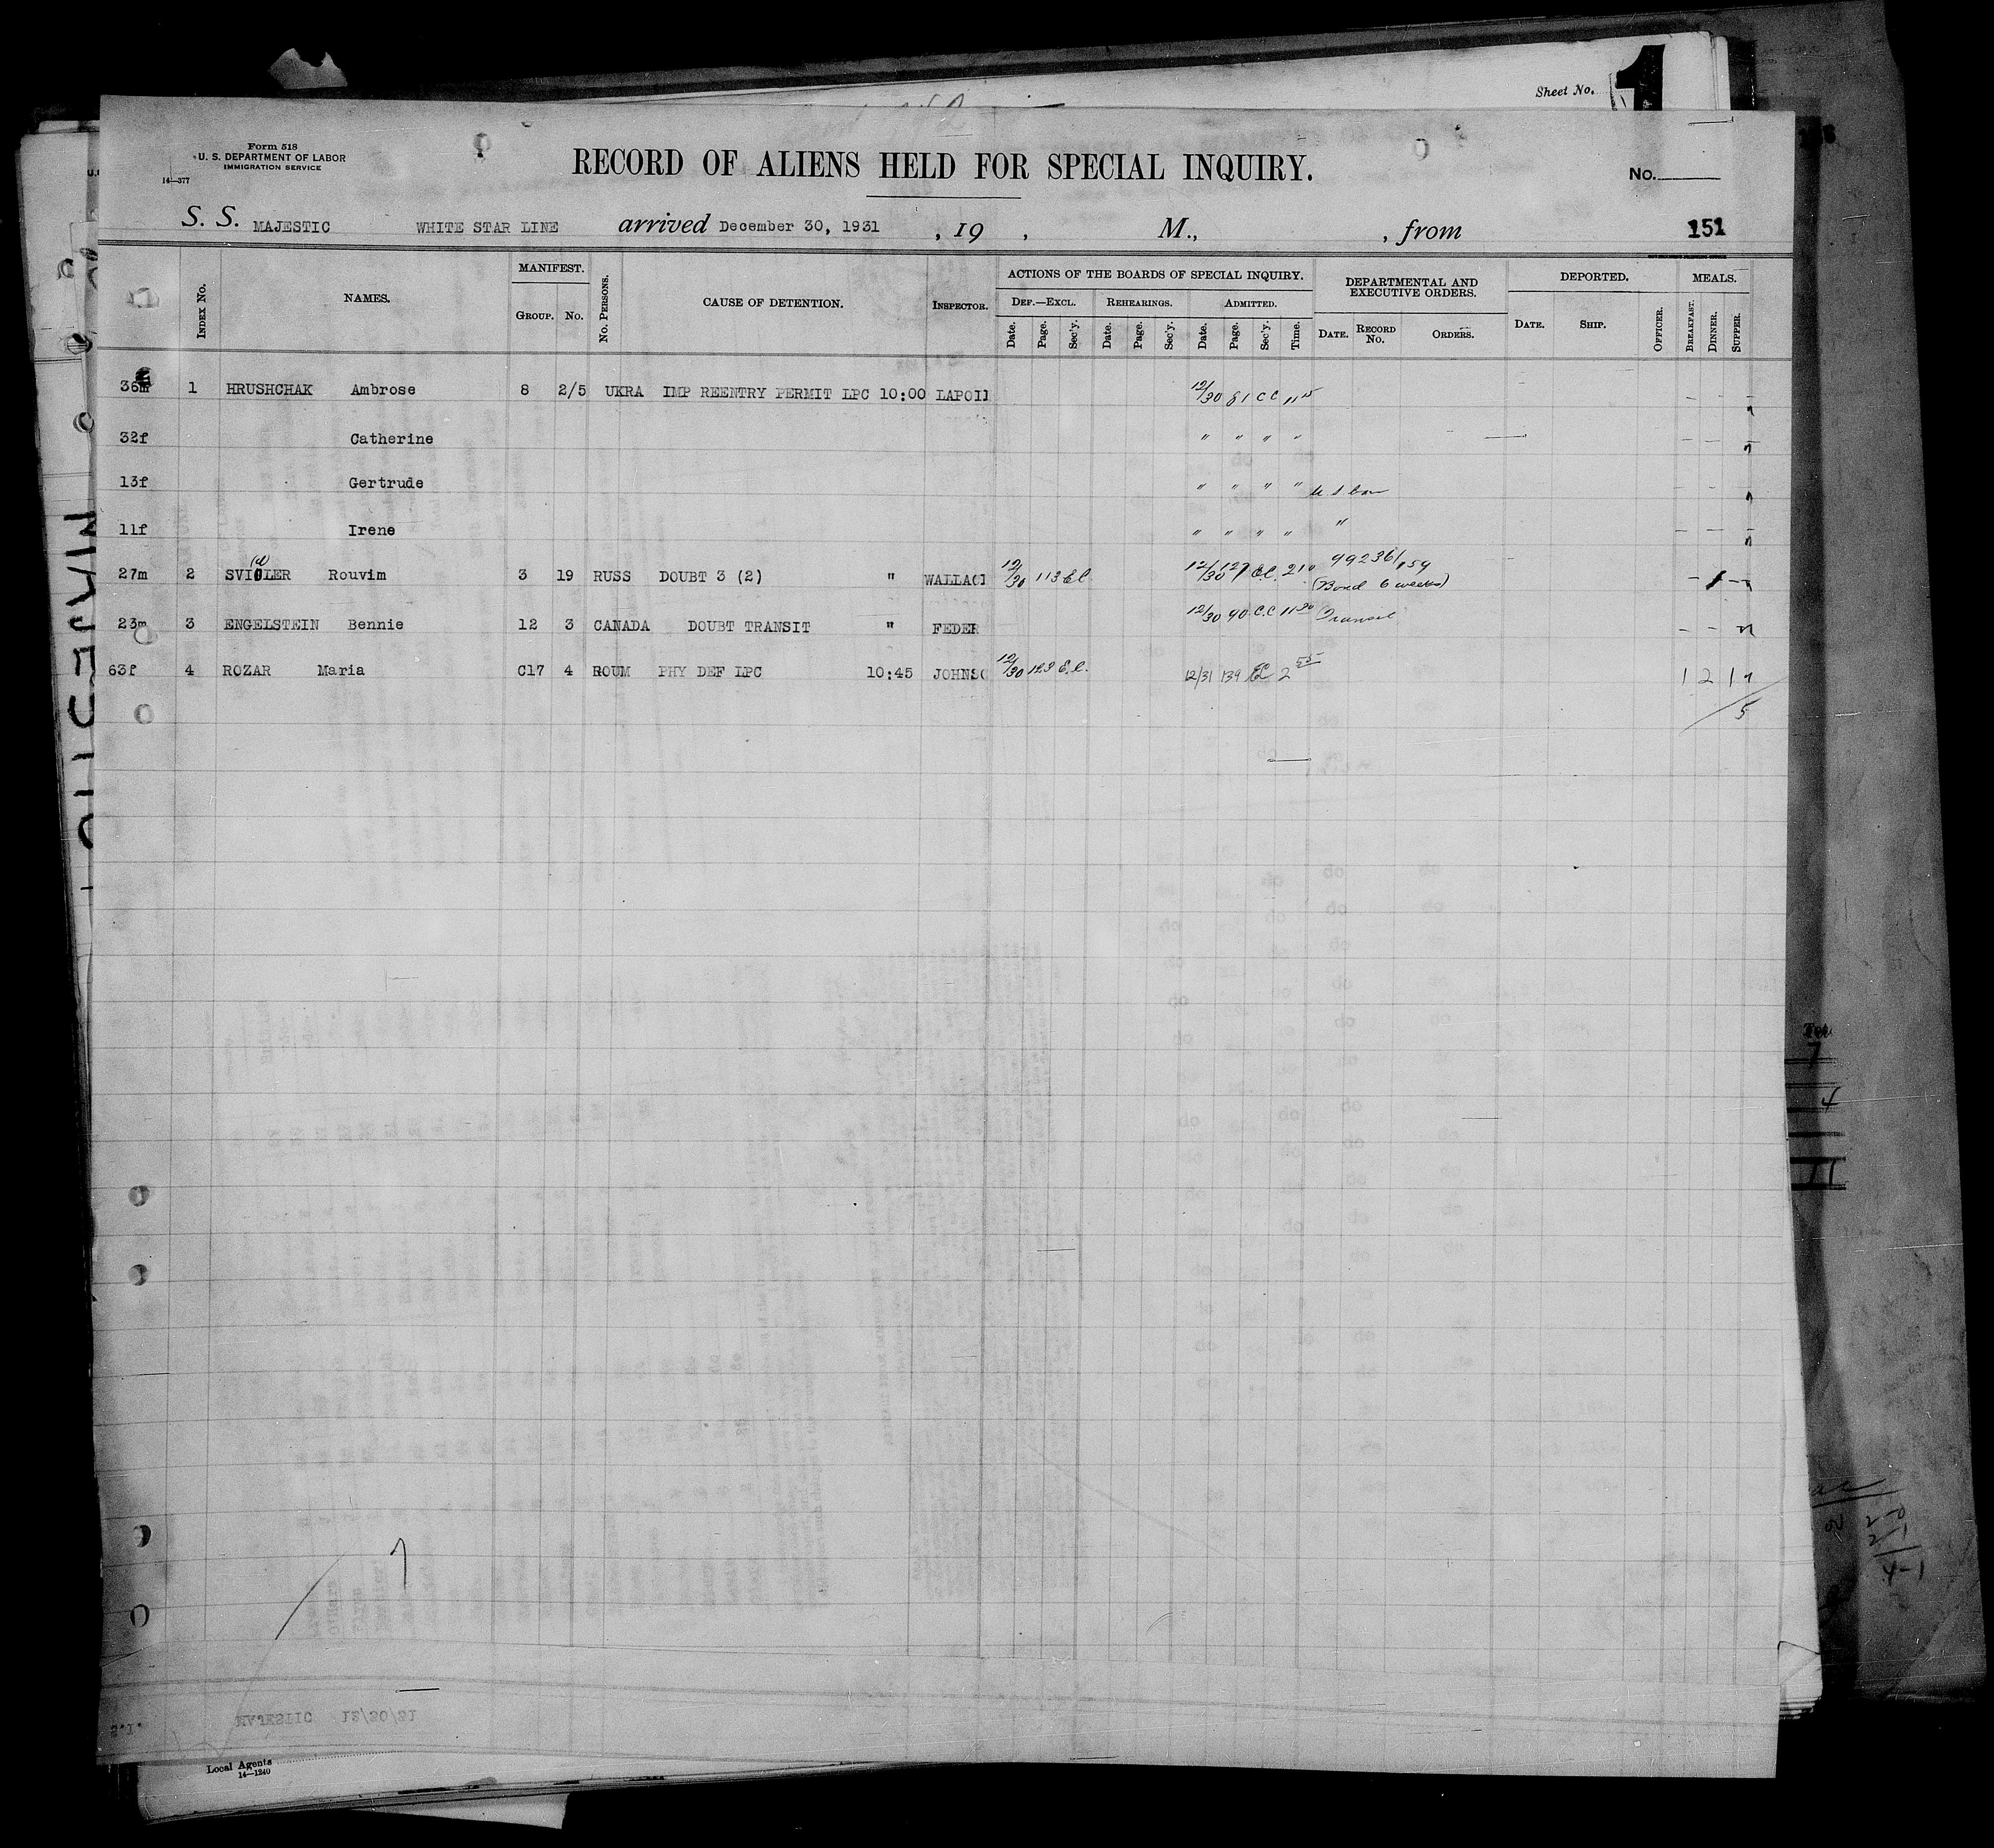 Sheet No. 1
Form 518
U. S. DEPARTMENT OF LABOR
IMMIGRATION SERVICE
14—377
RECORD OF ALIENS HELD FOR SPECIAL INQUIRY.
No.
S. S. MAJESTIC WHITE STAR LINE arrived December 30, 1931 , 19 , M., , from 151
INDEX No. NAMES. MANIFEST. GROUP. No. No. PERSONS. CAUSE OF DETENTION. INSPECTOR. ACTIONS OF THE BOARDS OF SPECIAL INQUIRY. DEPARTMENTAL AND EXECUTIVE ORDERS. DEPORTED. MEALS.
DEF.—EXCL. REHEARINGS. ADMITTED.
Date. Page. Sec'y. Date. Page. Sec'y. Date. Page. Sec'y. Time. DATE. RECORD No. ORDERS. DATE. SHIP. OFFICER. BREAKFAST. DINNER. SUPPER.
36m 1 HRUSHCHAK Ambrose 8 2/5 UKRA IMP REENTRY PERMIT LPC 10:00 LAPOI 12/30 81 CC 11 15
32f Catherine " " " "
13f Gertrude " " " "
11f Irene " " " " "
27m 2 SVIGLER Rouvim 3 19 RUSS DOUBT 3 (2) " WALLAC 12/30 113 E.C. 12/30 127 E.C. 210 99236/159
(Bond 6 weeks)
23m 3 ENGELSTEIN Bennie 12 3 CANADA DOUBT TRANSIT " FEDER 12/30 90 C.C 11 30 Transit
63f 4 ROZAR Maria C17 4 ROUM PHY DEF LPC 10:45 JOHNS 12/30 123 E.C. 12/31 139 EC 2 55 1 2 1
5
7
MAJESTIC 12/30/31
S.I.
Local Agents
14—1240